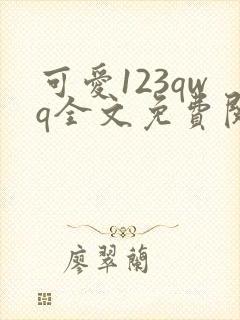 可愛123qw
q全文免費閱
廖翠蘭